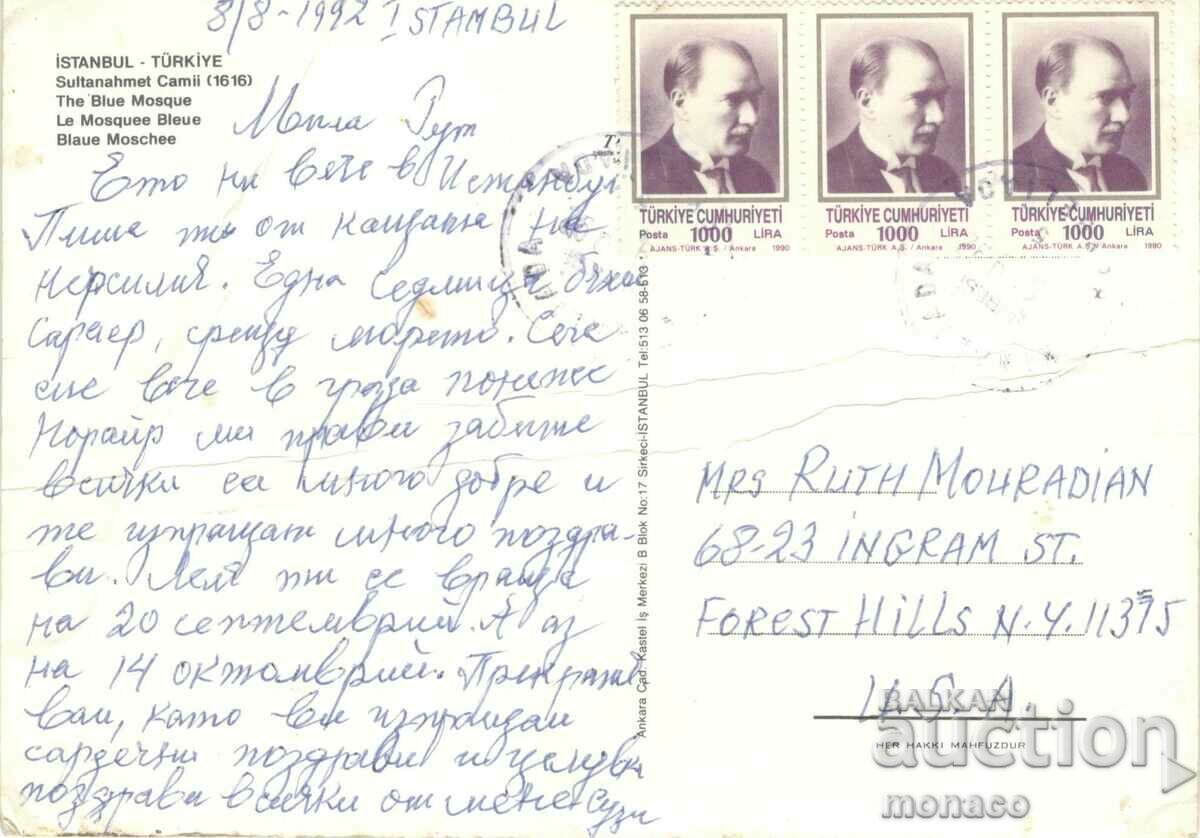 8/8-1992 ISTAMBUL
İSTANBUL - TÜRKİYE
Sultanahmet Camii (1616)
The Blue Mosque
Le Mosquee Bleue
Blaue Moschee
Мила Рут
Ето ни вече в Истанбул
Пиша ти от къщата на
Нерсилия. Една седмица бяхме
Саръер, срещу морето. Сега
сме вече в града понеже
Норайр ми прави забите
всички са много добре и
те изпращат много поздра-
ви. Лет ти се връща
на 20 септември. А аз
на 14 октомври. Прекратяв
вам, като ви изпращам
сърдечни поздрави и целувки
поздрави всички от мене Сузи
TÜRKİYE CUMHURİYETİ
Posta 1000 LİRA
AJANS-TÜRK A.Ş. / Ankara 1990
TÜRKİYE CUMHURİYETİ
Posta 1000 LİRA
AJANS-TÜRK A.Ş. / Ankara 1990
TÜRKİYE CUMHURİYETİ
Posta 1000 LİRA
AJANS-TÜRK A.Ş. / Ankara 1990
Ankara Cad. Kastel İş Merkezi B Blok No:17 Sirkeci-İSTANBUL Tel:513 06 58-513
MRS RUTH MOURADIAN
68-23 INGRAM ST.
FOREST HILLS N.Y. 11375
U.S.A.
HER HAKKI MAHFUZDUR
BALKAN
auction
monaco